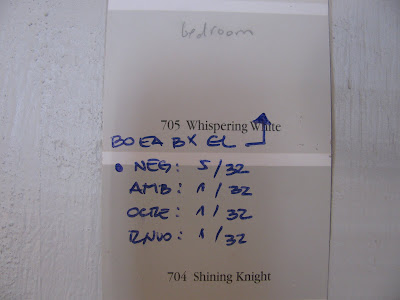 bedroom
705 Whispering White
BO EA BX EL
• NEG: 5/32
AMB: 1/32
OCRE: 1/32
RNVO: 1/32
704 Shining Knight